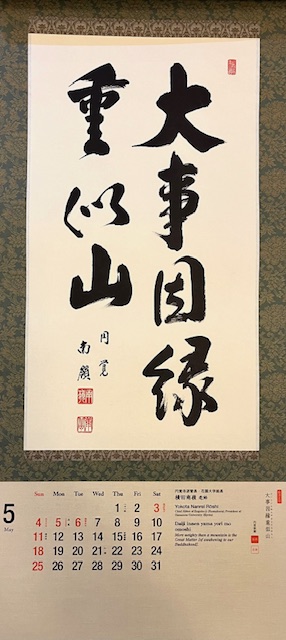 大事因縁
重似山
円覚
南嶺
5
May
Sun Mon Tue Wed Thu Fri Sat
1 2 3
4 5 6 7 8 9 10
11 12 13 14 15 16 17
18 19 20 21 22 23 24
25 26 27 28 29 30 31
円覚寺派管長・花園大学総長
横田南嶺 老師
Yokota Nanrei Rōshi
Daiji innen yama yori mo
omoshi
More weighty than a mountain is the
Great Matter [of awakening to our
Buddhahood].
大事因縁重似山